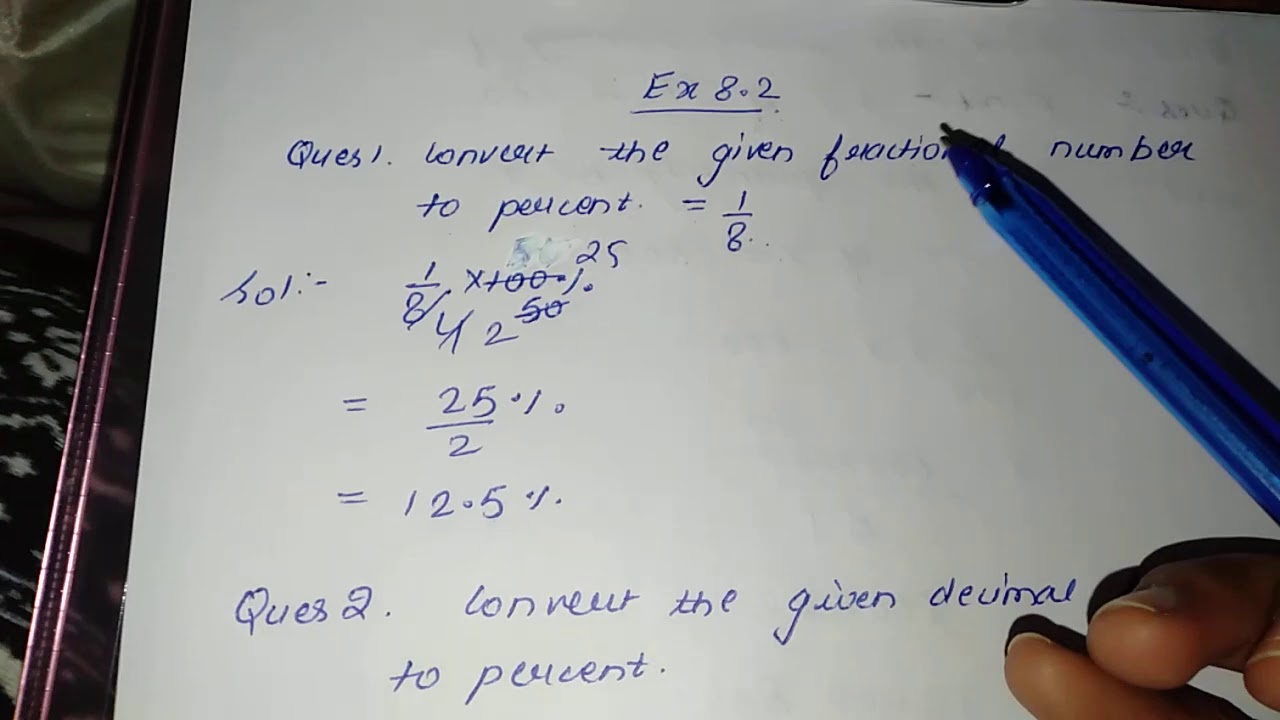 Ex 8.2
Ques 1. Convert the given fractional number
to percent. = 1/8
Sol:- 1/8 × 100 % 25
4 2 50
= 25/2 %
= 12.5 %
Ques 2. Convert the given decimal
to percent.